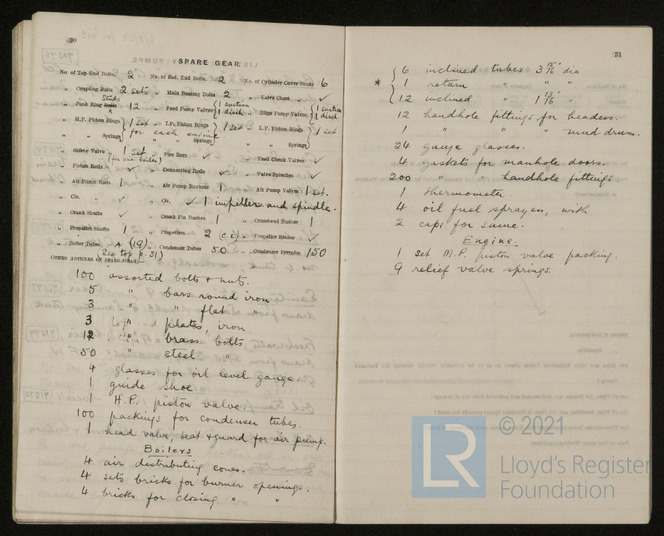 30
SPARE GEAR.
No. of Top End Bolts 2 No. of Bot. End Bolts 2 No. of Cylinder Cover Studs 6
" Coupling Bolts 2 sets " Main Bearing Bolts 2 " Valve Chest " ✓
" Junk Ring Studs 12 " Feed Pump Valves { 1 suction 1 disch " Bilge Pump Valves { 1 suction 1 disch
" H.P. Piston Rings } 1 set " I.P. Piston Rings } 1 set " L.P. Piston Rings } 1 set
" " Springs for each engine " " Springs " " Springs
" Safety Valve " 1 set " Fire Bars ✓ " Feed Check Valves ✓
(for one boiler)
" Piston Rods ✓ " Connecting Rods ✓ " Valve Spindles ✓
" Air Pump Rods 1 " Air Pump Buckets 1 " Air Pump Valves 1 set.
" Cir. " ✓ " Cir. " ✓ 1 impeller and spindle.
" Crank Shafts ✓ " Crank Pin Bushes 1 " Crosshead Bushes 1
" Propeller Shafts 1 " Propellers 2 (C.i) " Propeller Blades ✓
" Boiler Tubes * (19) " Condenser Tubes 50 " Condenser Ferrules 150
(See top p. 31)
OTHER ARTICLES OF SPARE GEAR:—
100 assorted bolts & nuts.
5 " bars round iron
3 " " flat "
3 " plates, iron
12 " brass bolts
50 " steel "
4 glasses for oil level gauge
1 guide shoe
1 H.P. piston valve.
100 packings for condenser tubes.
1 head valve, seat & guard for air pump.
Boilers
4 air distributing cones.
4 sets bricks for burner openings.
4 bricks for closing " "
31
* { 6 inclined tubes 3 15/16" dia
1 return " " "
12 inclined " 1 13/16" "
12 handhole fittings for headers.
1 " " " mud drum.
24 gauge glasses.
4 gaskets for manhole doors.
200 " " handhole fittings.
1 thermometer
4 oil fuel sprayers, with
2 caps for same.
Engine
1 set M.P. piston valve packing.
9 relief valve springs.
LR
© 2021
Lloyd's Register
Foundation